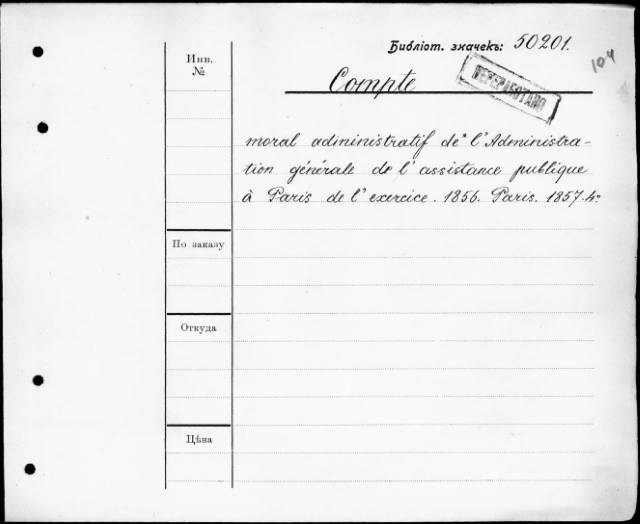 Библіот. значекъ: 50201.
104
Инв.
№
ПЕРЕРАБОТАНО
Compte
moral administratif de l'Administra-
tion générale de l'assistance publique
à Paris de l'exercice. 1856. Paris. 1857. 4º
По заказу
Откуда
Цѣна